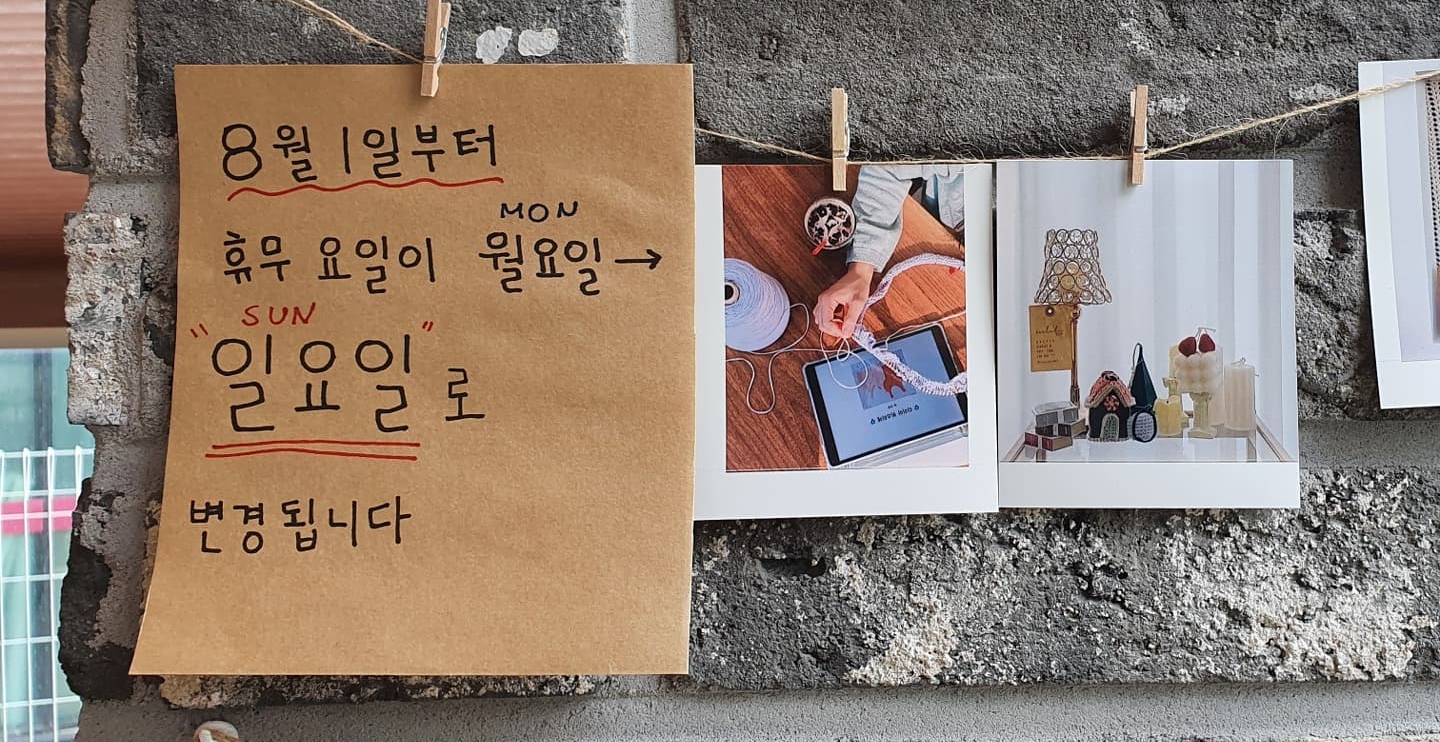 8월 1일부터
MON
휴무 요일이 월요일→
SUN
"일요일"로
변경됩니다